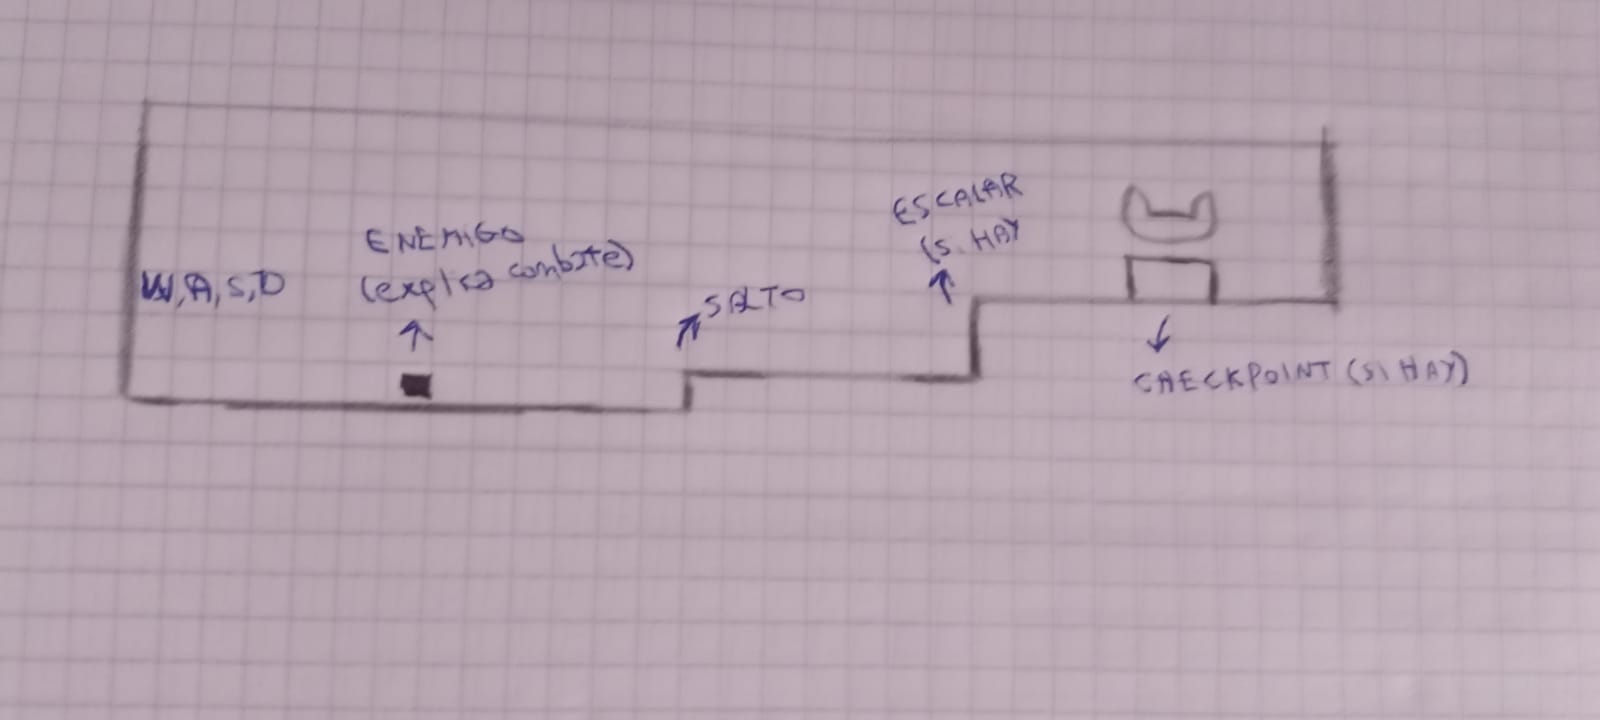 W,A,S,D
ENEMIGO
(explica combate)
SALTO
ESCALAR
(SI HAY
CHECKPOINT (SI HAY)